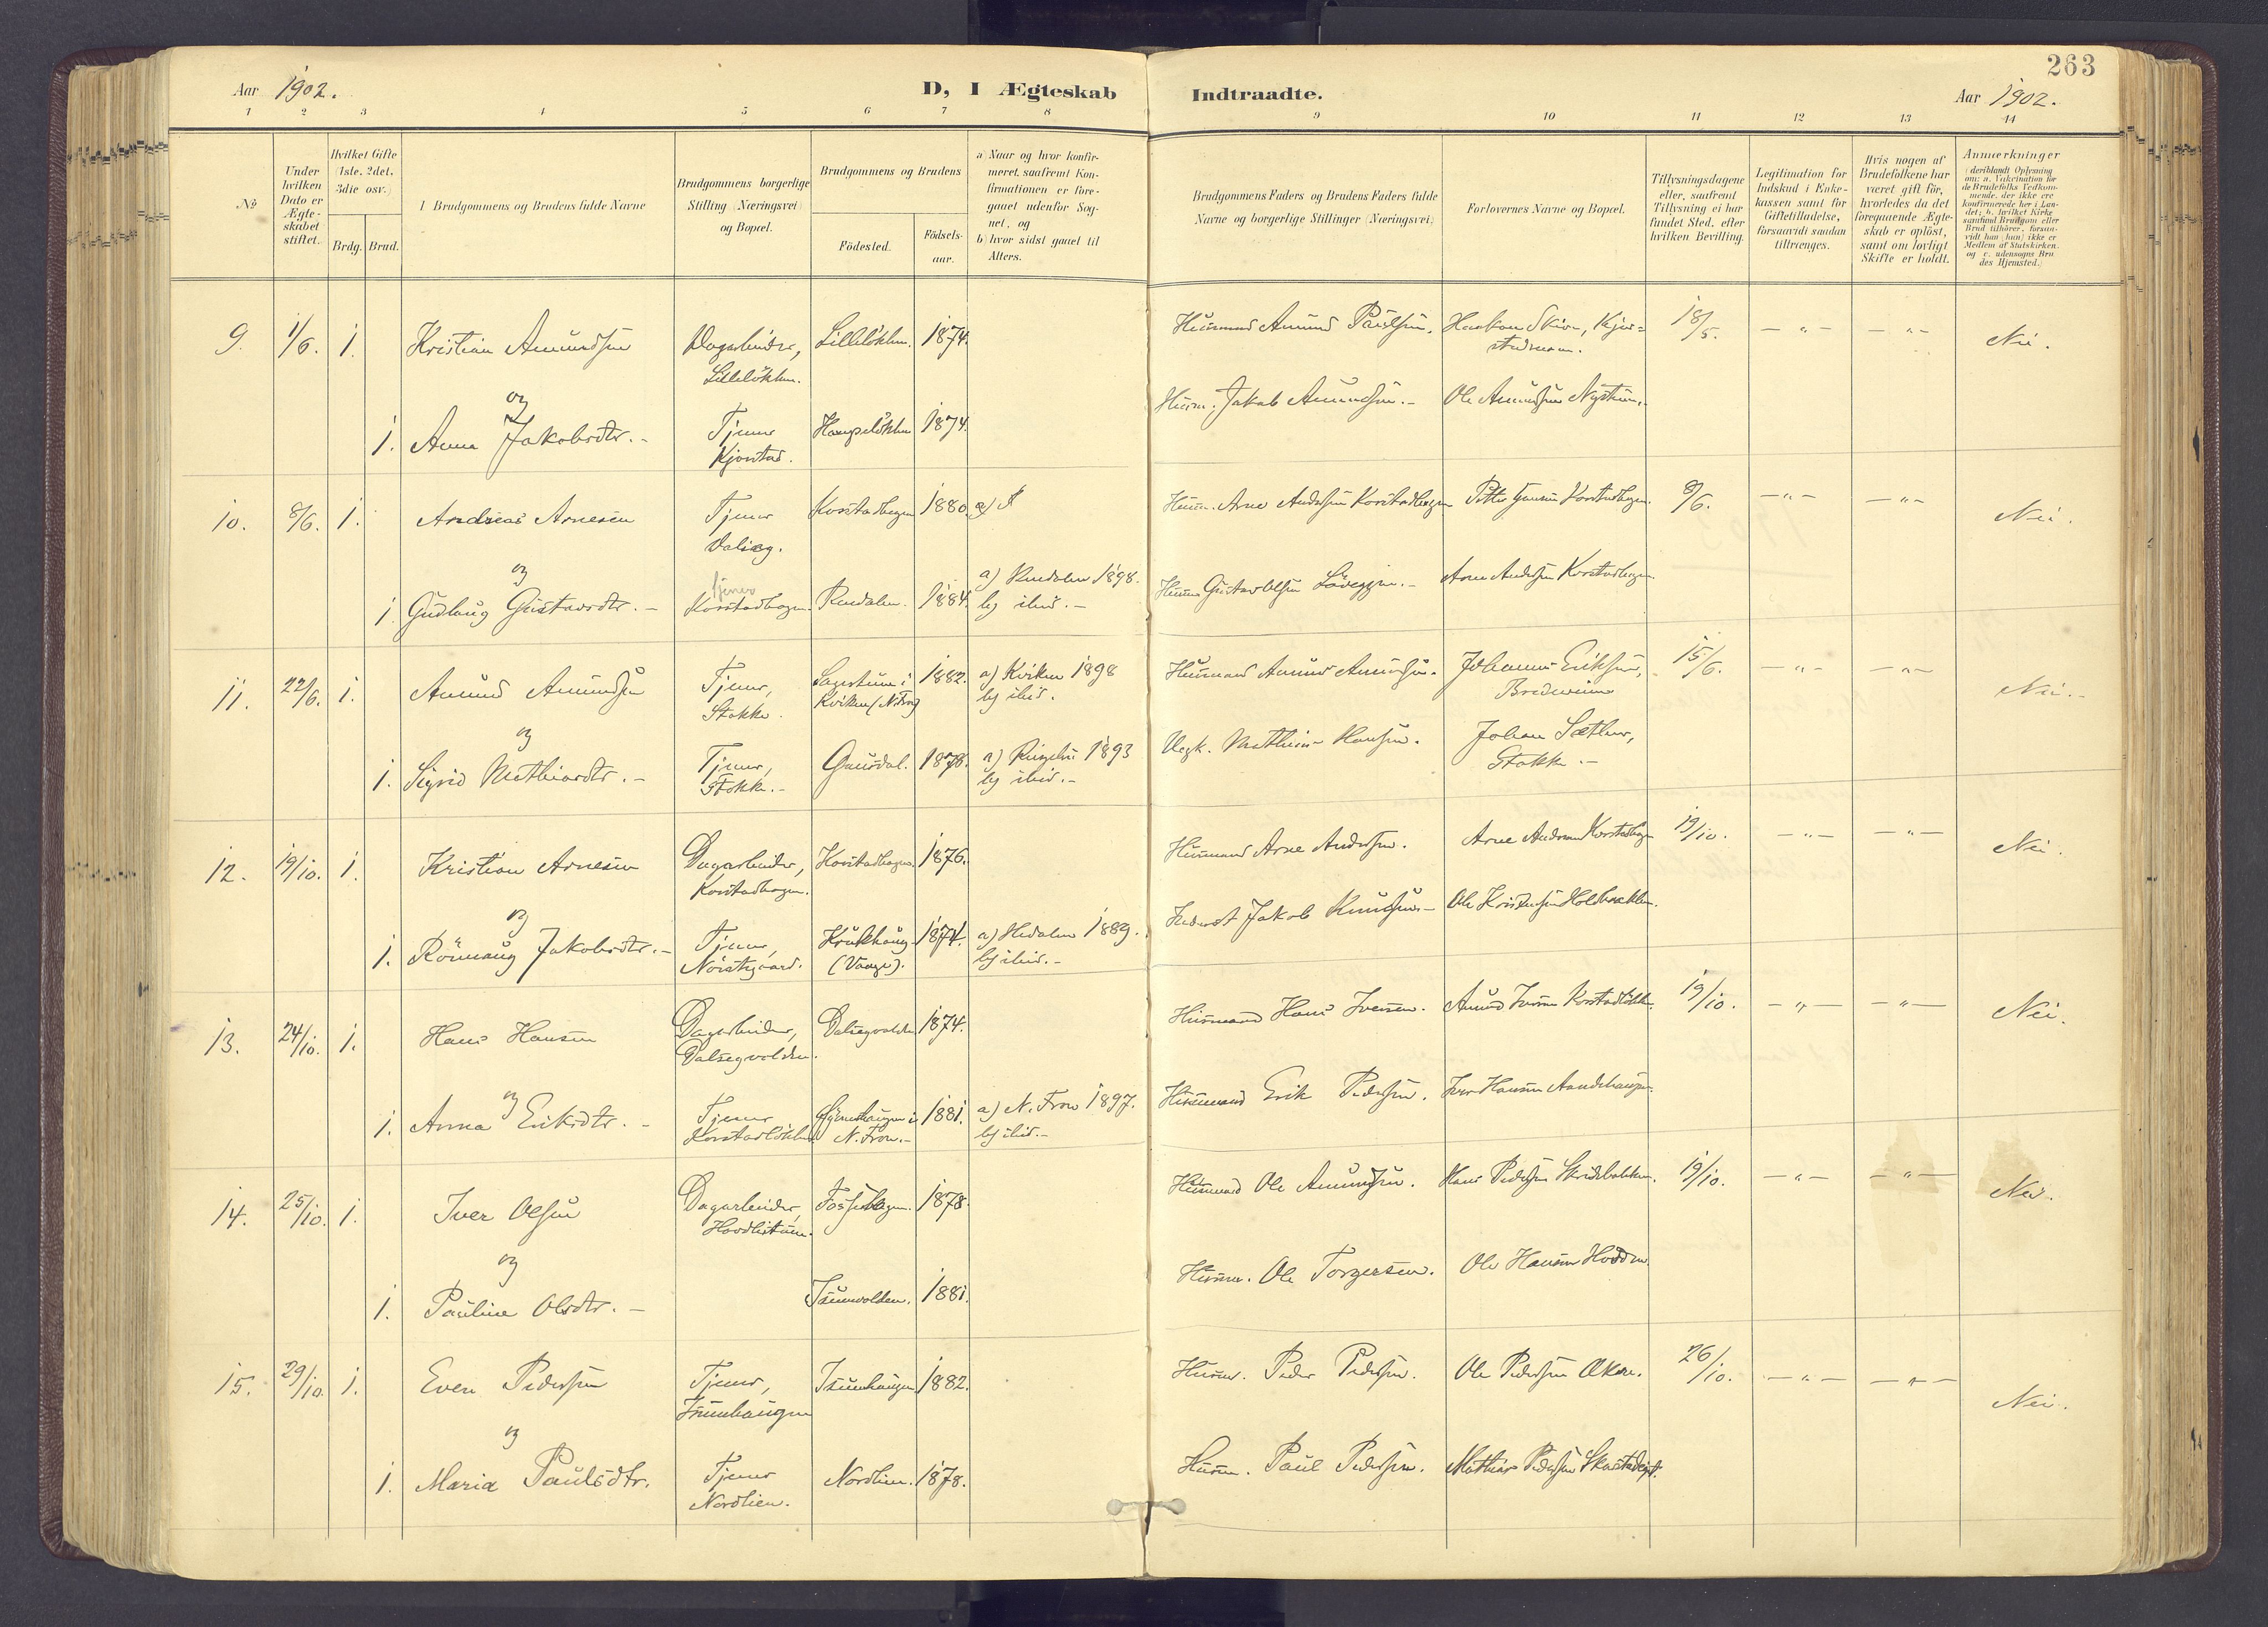 263
Aar 1902.
D, I Ægteskab Indtraadte.
Aar 1902.
1 2 3 4 5 6 7 8 9 10 11 12 13 14
№
Under hvilken Dato er Ægteskabet stiftet.
Hvilket Gifte (1ste, 2det, 3die osv.)
Brdg. Brud.
I Brudgommens og Brudens fulde Navne
Brudgommens borgerlige Stilling (Næringsvei) og Bopæl.
Brudgommens og Brudens
Födested.
Födselsaar.
a) Naar og hvor konfirmeret, saafremt Konfirmationen er foregaaet udenfor Sognet, og
b) hvor sidst gaaet til Alters.
Brudgommens Faders og Brudens Faders fulde Navne og borgerlige Stillinger (Næringsvei)
Forlovernes Navne og Bopæl.
Tillysningsdagene eller, saafremt Tillysning ei har fundet Sted, efter hvilken Bevilling.
Legitimation for Indskud i Enkekassen samt for Giftetilladelse, forsaavidt saadan tiltrænges.
Hvis nogen af Brudefolkene har været gift för, hvorledes da det foregaaende Ægteskab er oplöst, samt om lovligt Skifte er holdt.
Anmærkninger (deriblandt Oplysning om: a. Vakcination for de Brudefolks Vedkommende, der ikke ere konfirmerede her i Landet; b. hvilket Kirkesamfund Brudgom eller Brud tilhörer, forsaavidt han (hun) ikke er Medlem af Statskirken, og c. udensogns Brudes Hjemsted.)
9. 1/6. 1. Kristian Amundsen Dagarbeider, Lilleløkken. Lilleløkken. 1874. Husmand Amund Paulsen. Haakon Skior, 18/5. — " — — " — Nei.
og
1. Anna Jakobsdtr. Tjener Kjorstad. 1874. Husm. Jakob Amundsen. Ole Amundsen Nystuen.
10. 8/6. 1. Andreas Arnesen Tjener Dalseg. Korstadhagen 1880. a) Husm. Arne Andersen Korstadhagen Korstadhagen. 8/6. — " — — " — Nei.
og
1. Gudlaug Gustavsdtr. Tjener Korstadhagen. Rendalen. 1884. a) Rendalen 1898. b) ibid. Husm. Gustav Olsen Arne Andersen Korstadhagen.
11. 22/6. 1. Amund Amundsen Tjener, Stokke. Kvikne (N. Fron) 1882. a) Kvikne 1898 b) ibid. Husmand Amund Amundsen. Johannes Eriksen, 15/6. — " — — " — Nei.
og
1. Sigrid Mathiasdtr. Tjener, Stokke. Gausdal. 1878. a) Ringebu 1893 b) ibid. Mathias Hansen. Johan Sæther, Stokke.
12. 19/10. 1. Kristian Arnesen Dagarbeider, Korstadhagen. Korstadhagen. 1876. Husmand Arne Andersen. Arne Andersen Korstadhagen 19/10. — " — — " — Nei.
og
1. Rönnaug Jakobsdtr. Tjener, Nörstegaard. Krukhaug (Vaage). 1874. a) Hedalen 1889. b) ibid. Inderst Jakob Knudsen Ole Kristensen Holebakken.
13. 24/10. 1. Hans Hansen Dagarbeider, Dalsegvolden. Dalsegvolden 1874. Husmand Hans Iversen. Amund Iversen Korstadløkken. 19/10. — " — — " — Nei.
og
1. Anna Eriksdtr. Tjener Korstadløkken N. Fron. 1881. a) N. Fron 1897. b) ibid. Husmand Erik Pedersen. Iver Hansen
14. 25/10. 1. Iver Olsen Dagarbeider, Fossehagen. 1878. Husmand Ole Amundsen. Hans Pedersen 19/10. — " — — " — Nei.
og
1. Pauline Olsdtr. 1881. Husm. Ole Torgersen. Ole Hansen Hodden.
15. 29/10. 1. Even Pedersen Tjener, 1882. Husm. Peder Pedersen. Ole Pedersen 26/10. — " — — " — Nei.
og
1. Maria Paulsdtr. Tjener Nordlien. Nordlien. 1878. Husm. Paul Pedersen. Mathias Pedersen